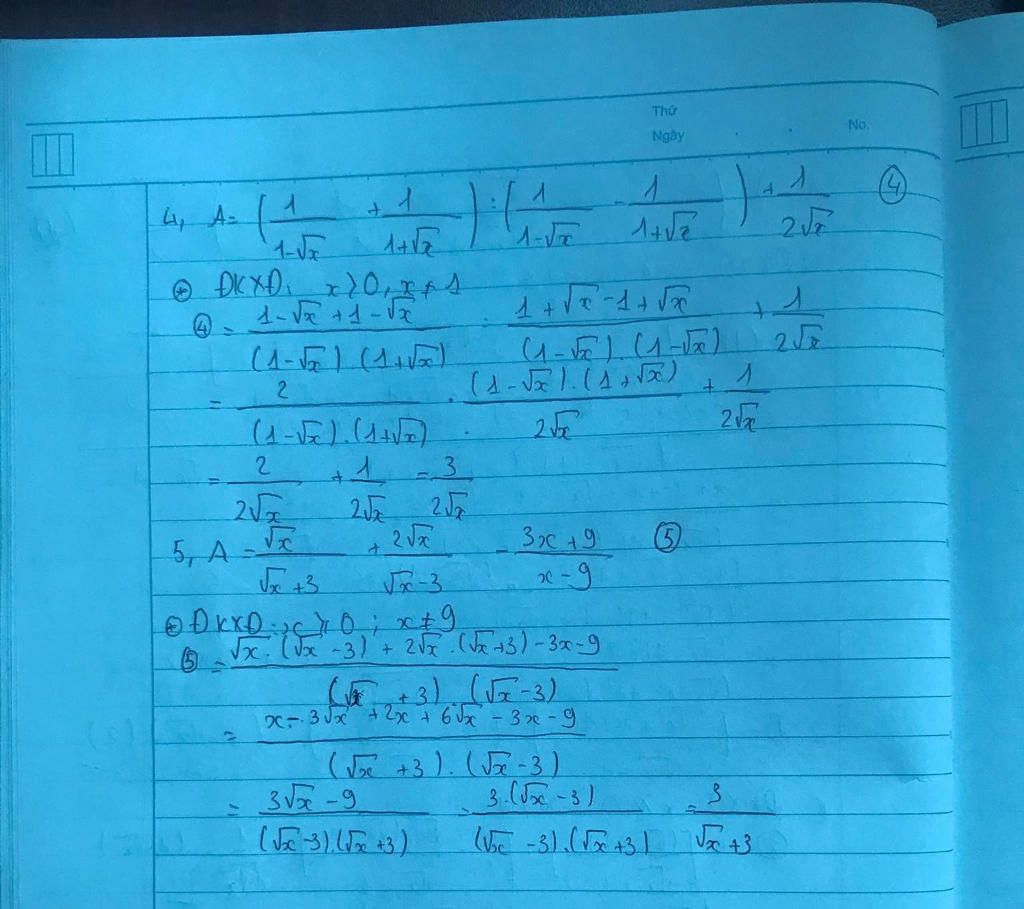 Thứ
Ngày . . No.
4, A = (1/(1-√x) + 1/(1+√x)) : (1/(1-√x) - 1/(1+√x)) + 1/(2√x) ④
⊕ ĐKXĐ: x > 0, x ≠ 1
④ = (1-√x+1-√x)/((1-√x).(1+√x)) : (1+√x-1+√x)/((1-√x).(1-√x)) + 1/(2√x)
= 2/((1-√x).(1+√x)) . ((1-√x).(1+√x))/(2√x) + 1/(2√x)
= 2/(2√x) + 1/(2√x) = 3/(2√x)
5, A = √x/(√x+3) + 2√x/(√x-3) - (3x+9)/(x-9) ⑤
⊕ ĐKXĐ: x ≥ 0; x ≠ 9
⑤ = (√x.(√x-3) + 2√x.(√x+3) - 3x - 9)/((√x+3).(√x-3))
= (x - 3√x + 2x + 6√x - 3x - 9)/((√x+3).(√x-3))
= (3√x-9)/((√x-3).(√x+3)) = (3.(√x-3))/((√x-3).(√x+3)) = 3/(√x+3)